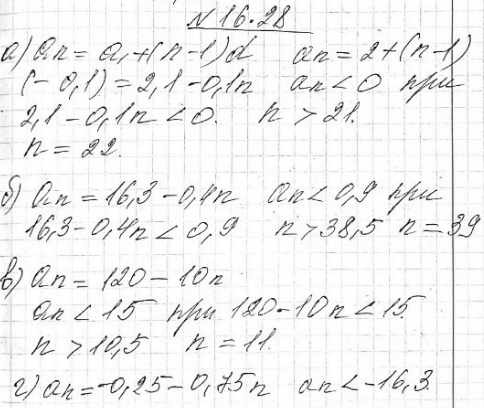 № 16.28
а) an = a1+(n-1)d   an = 2+(n-1)
(-0,1) = 2,1-0,1n   an<0 при
2,1-0,1n<0.   n > 21.
n = 22.
б) an = 16,3-0,4n   an<0,9 при
16,3-0,4n<0,9   n>38,5 n = 39
в) an = 120-10n
an < 15 при 120-10n<15
n > 10,5   n = 11.
г) an=-0,25-0,75n   an<-16,3.